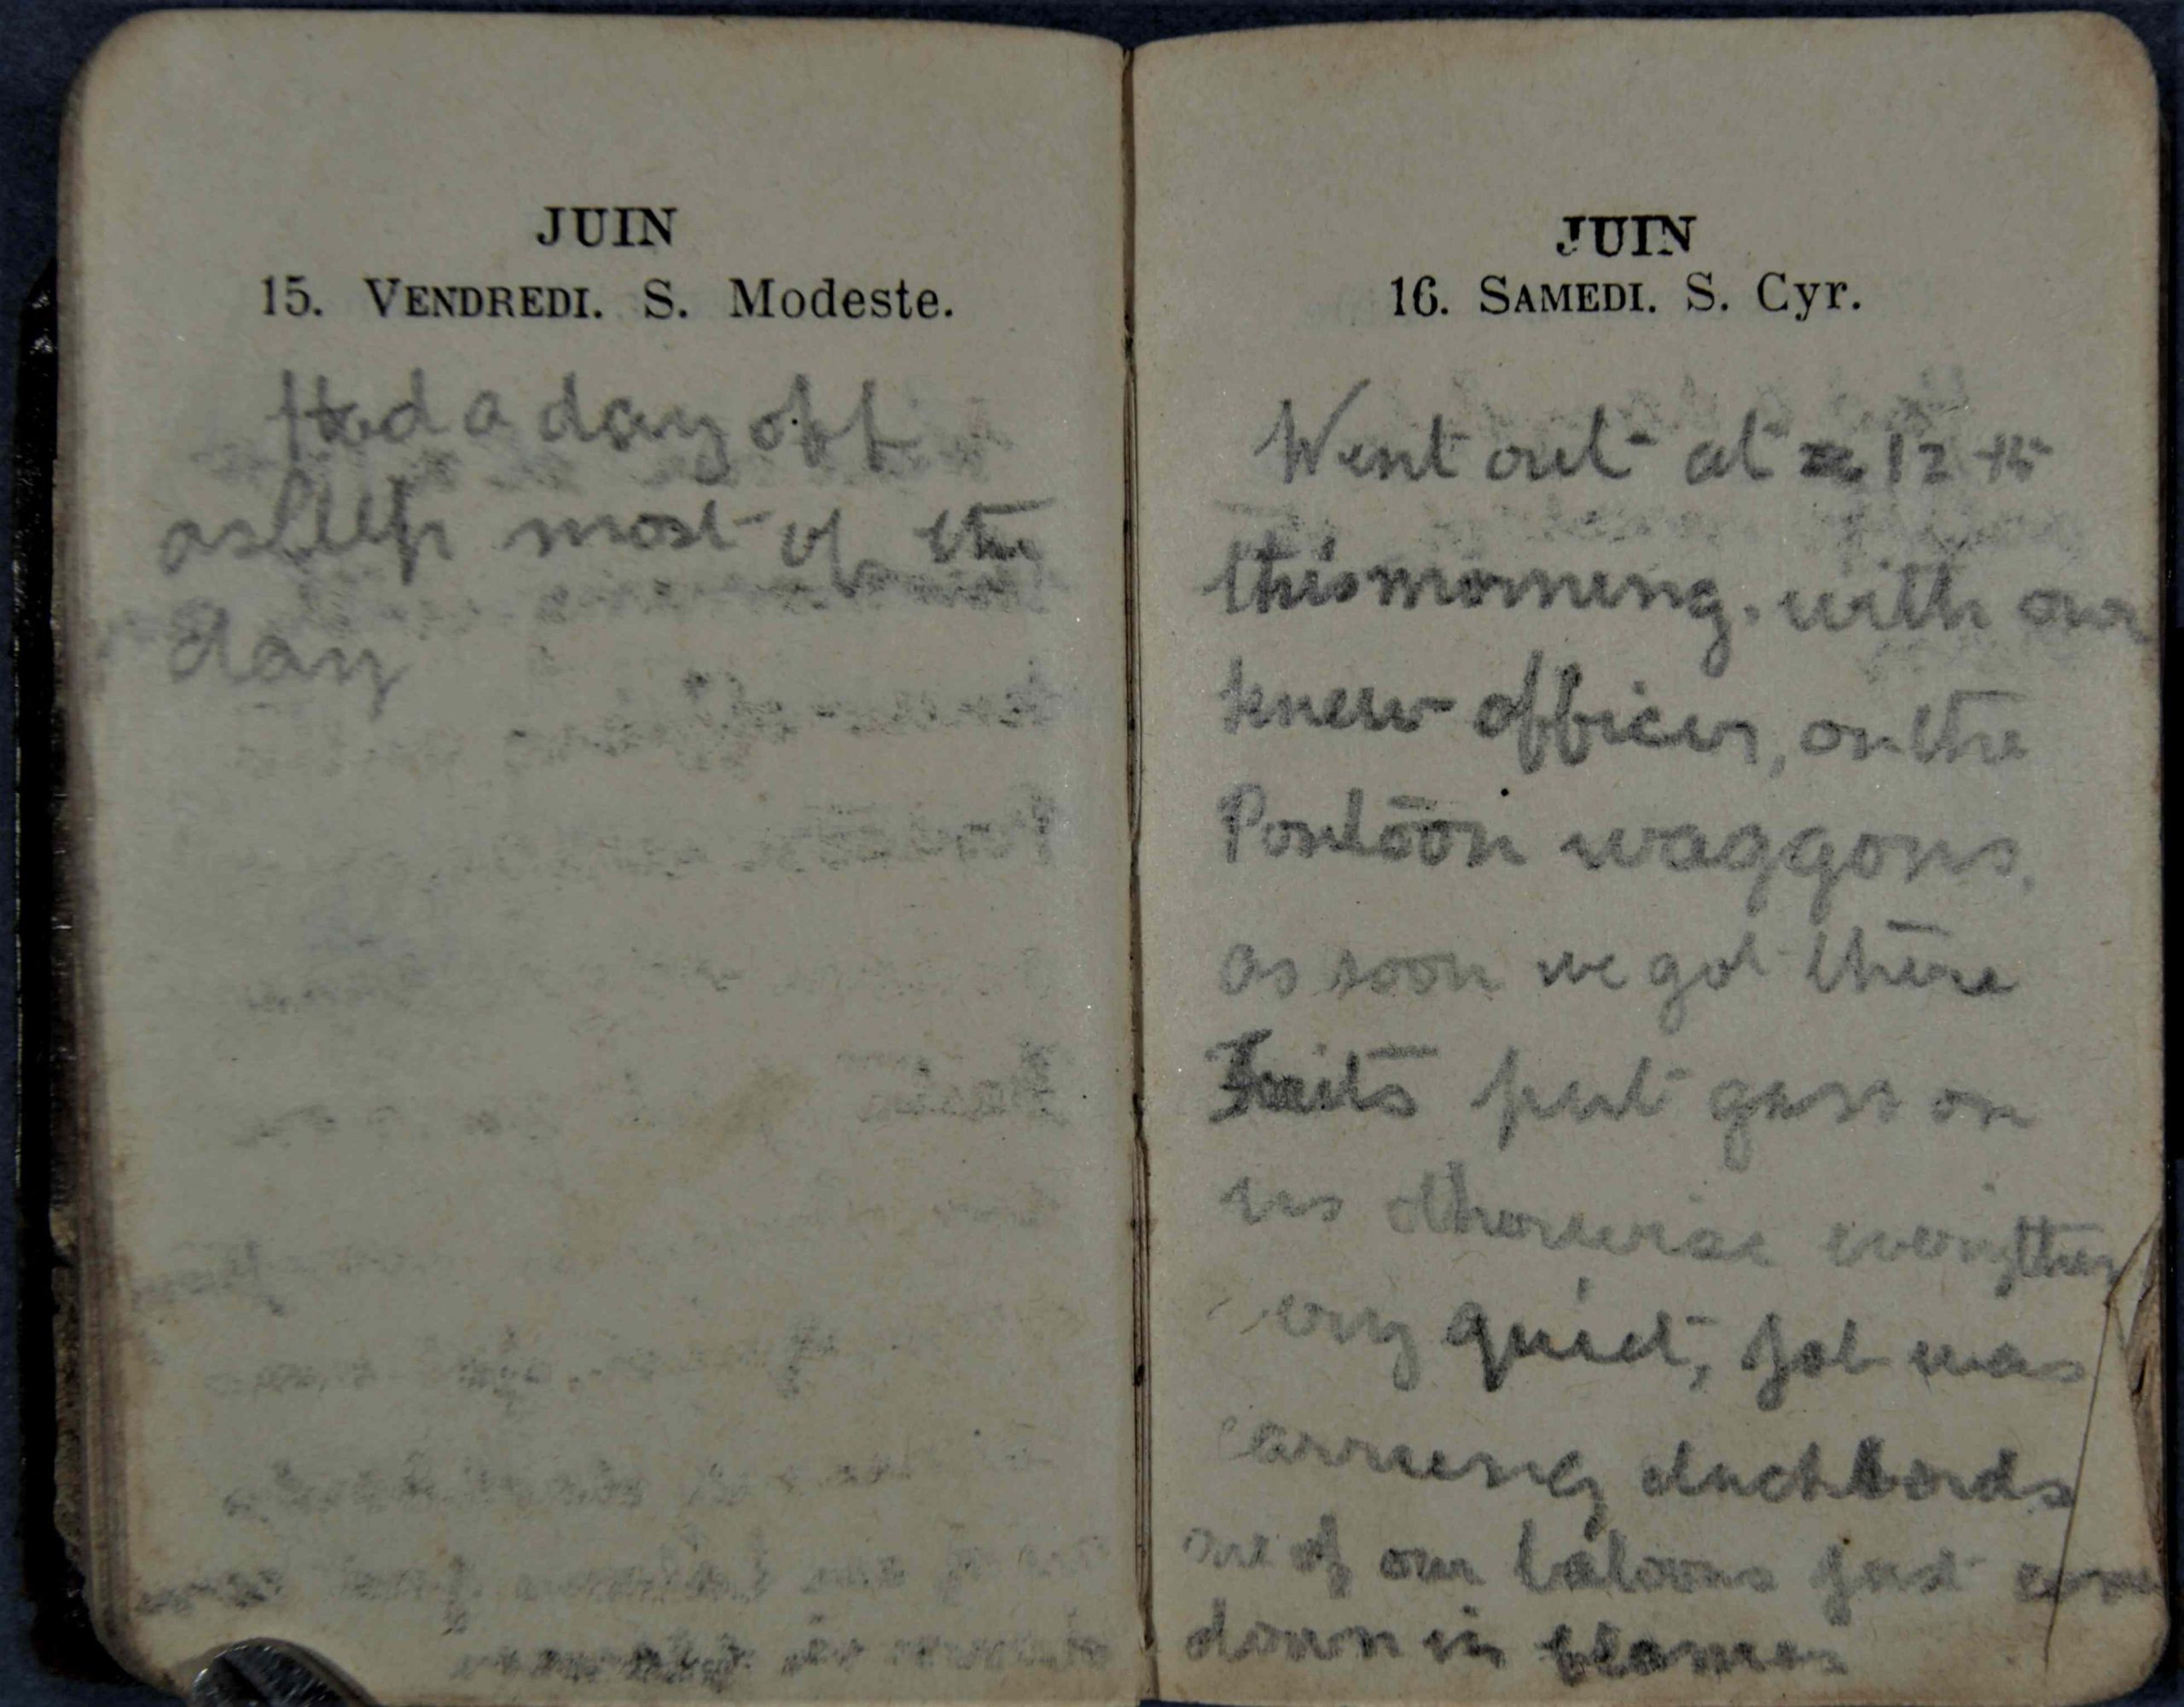 JUIN
15. VENDREDI. S. Modeste.
Had a day off
asleep most of the
day
JUIN
16. SAMEDI. S. Cyr.
Went out at 12
this morning. with our
knew officer, on the
Pontoon waggons.
as soon we got there
Fruits put gass on
us otherwise everything
very quiet, Job was
carrieng duchbords
one of our baloons just come
down in flames